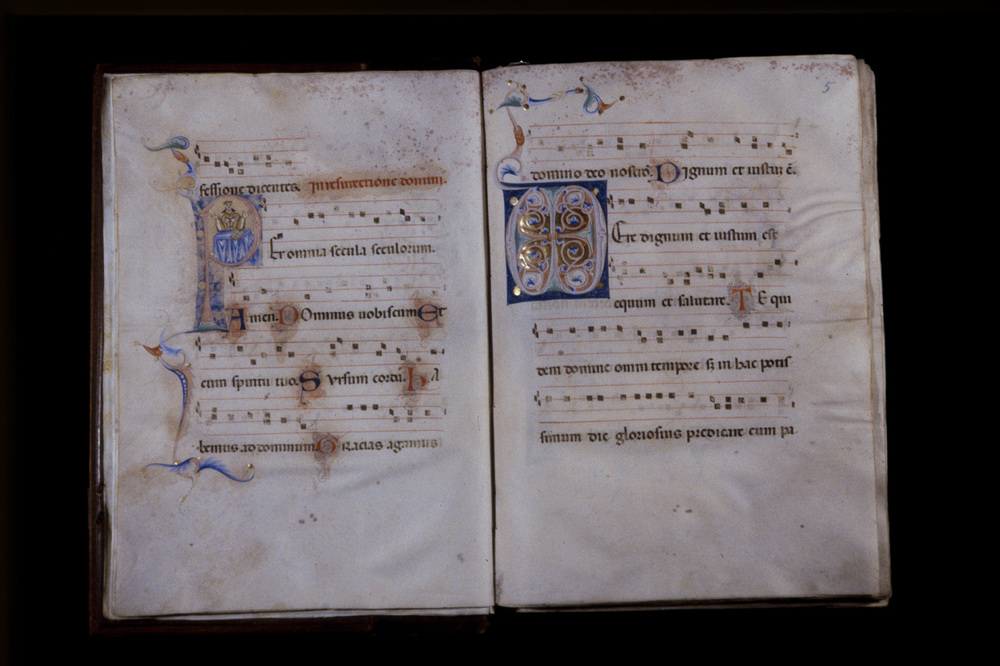 fessione dicentes. In resurrectione domini.
Per omnia secula seculorum.
Amen. DOminus uobiscum Et
cum spiritu tuo. SUrsum corda. ha
bemus ad dominum GRacias agamus
5
domino deo nostro. Dignum et iustum ē.
Ere dignum et iustum est
equum et salutare. TE qui
dem domine omni tempore s; in hac potis
simum die gloriosius predicare cum pa